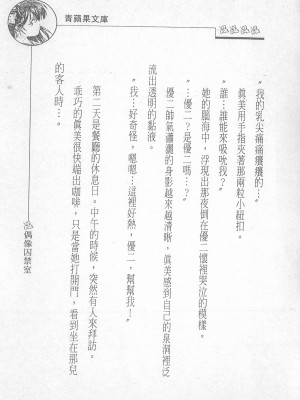 青蘋果文庫
“我的乳尖痛痛癢癢的…”
真美用手指夾著那兩粒小紐扣。
“誰…誰能來吸吮我？”
她的腦海中，浮現出那夜倒在優二懷裡哭泣的模樣。
“…優二？是優二嗎…？”
優二帥氣瀟灑的身影越來越清晰，真美感到自己的泉洞裡泛
流出透明的黏液。
“我…好奇怪，嗯嗯…這裡好熱，優二，幫幫我！”
第二天是餐廳的休息日。中午的時候，突然有人來拜訪。
乖巧的真美很快端出咖啡，只是當她打開門，看到坐在那兒
的客人時…。
偶像囚禁室